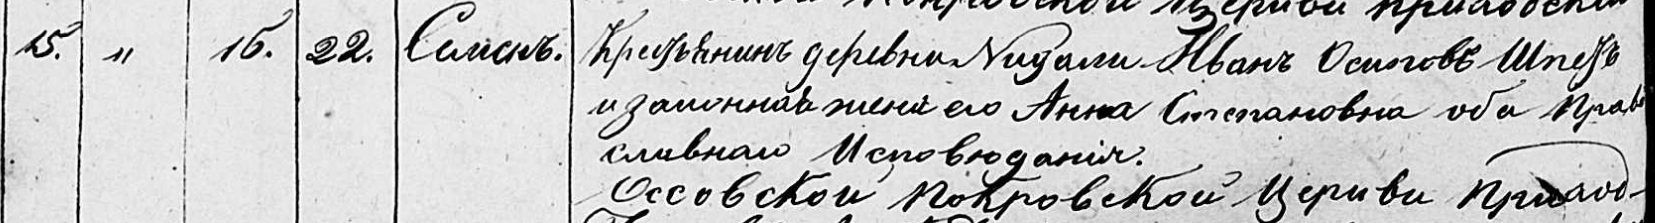 Покровской Церкви приходской
15. " 16. 22. Симонъ. Крестьянинъ деревни Иван Осиповъ Шпетъ
и законная жена его Анна Степановна оба Право
славнаго Исповѣданія.
Оссовской Покровской Церкви Приход-